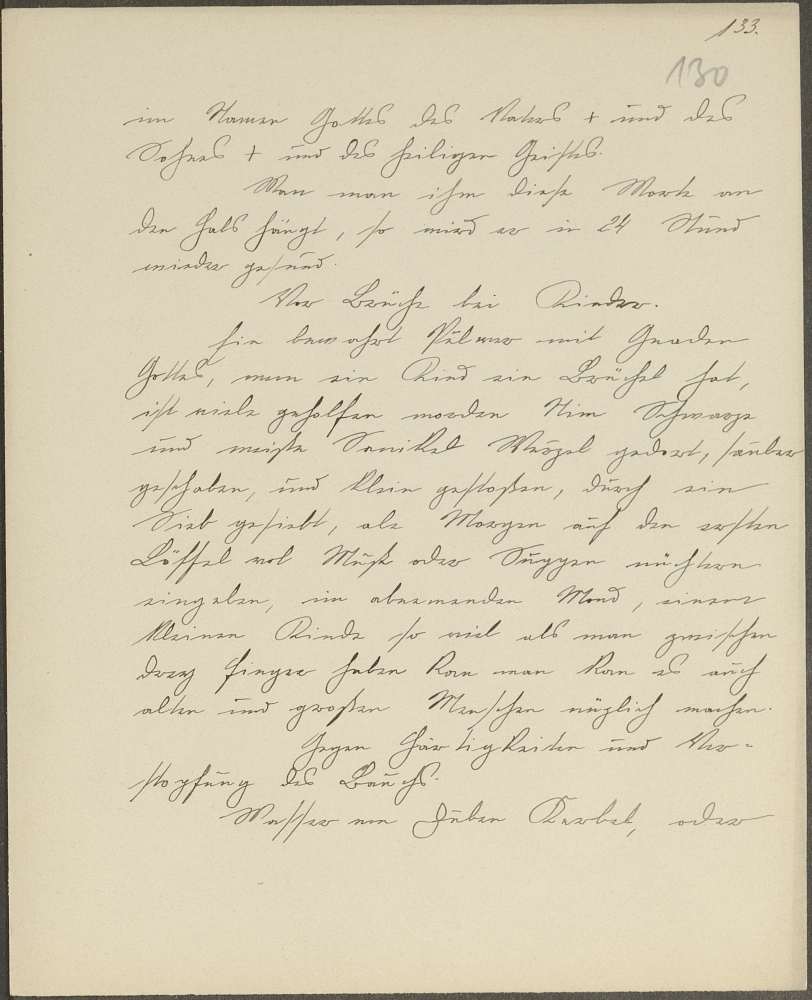 133.
130
im Namen Gottes des Vaters + und des
Sohnes + und des heiligen Geistes.
Wan man ihm diese Worte an
den Hals hängt, so wird er in 24 Stund
wieder gesund.
Vor Brüche bei Kinder.
Ein bewahrt Pulver mit Gnaden
Gottes, wenn ein Kind ein Brüchel hat,
ist viele geholfen worden Nim Schwarze
und weiße Sanikel Wurzel gedert, sauber
geschaben, und klein gestoßen, durch ein
Sieb gesiebt, ale Morgen auf den ersten
Löffel vol Muß oder Suppen nüchtern
eingeben, im abnemenden Mond, einem
kleinen Kinde so viel als man zwischen
drey Finger heben kan man kan es auch
alten und großen Menschen nüzlich machen.
Gegen Härtigkeiten und Ver-
stopfung des Bauchs.
Wasser von Kerbel, oder